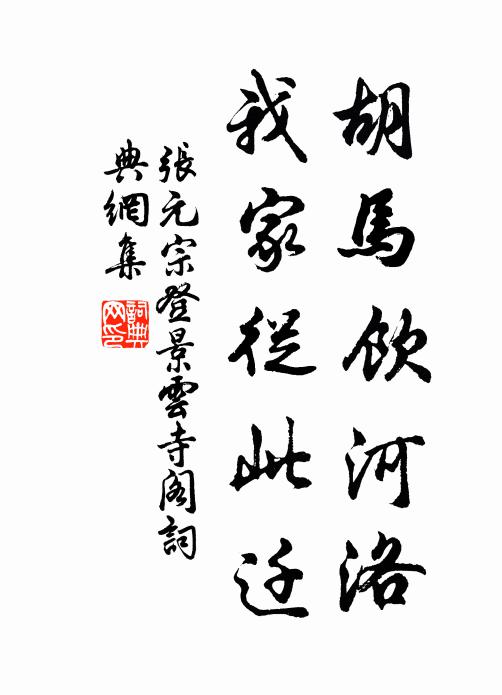 胡馬飲河洛
我家從此迁
張元宗登景雲寺閣詞
典網集
詞典
网印